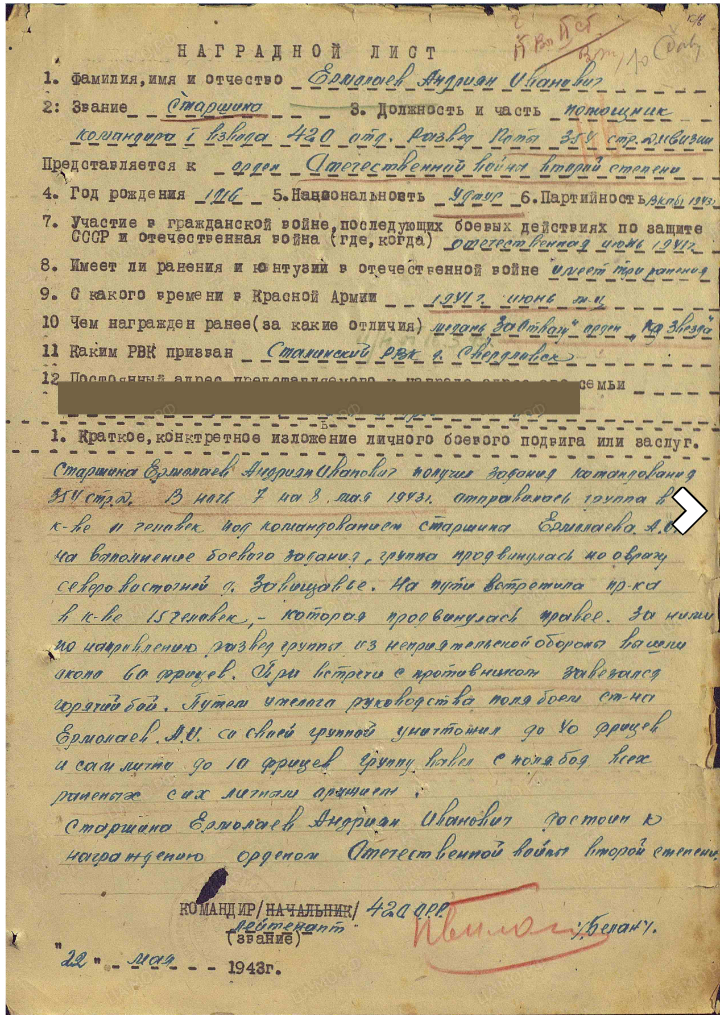 НАГРАДНОЙ ЛИСТ
1. Фамилия,имя и отчество Ермолаев Андриян Иванович
2: Звание Старшина 3. Должность и часть помощник
командира I взвода 420 отд. Развед Роты 354 стр. дивизии
Представляется к орден Отечественной войны второй степени
4. Год рождения 1916 5.Национальность Удмур 6.Партийность ВКП(б) 1943г.
7. Участие в гражданской войне,последующих боевых действиях по защите
СССР и отечественная война (где,когда) отечественная июнь 1941г.
8. Имеет ли ранения и контузии в отечественной войне имеет три ранения
9. С какого времени в Красной Армии 1941 г. июнь м-ц
10 Чем награжден ранее(за какие отличия) медаль "За Отвагу" орден "Кр Звезда"
11 Каким РВК призван Сталинский РВК г. Свердловск
12 Постоянный адрес представляемого к награде адрес его семьи
1. Краткое,конкретное изложение личного боевого подвига или заслуг.
Старшина Ермолаев Андриян Иванович получил задания командования
354 стр.д. В ночь 7 на 8 мая 1943г. отправилась группа в
к-ве 11 человек под командованием старшина Ермолаева А.
на выполнение боевого задания, группа продвинулась по оврагу
северо восточней д. Завищавье. На пути встретила пр-ка
в к-ве 15 человек, - которая продвинулась правее. За ними
по направлению развед группы из неприятельской обороны вышли
около 60 фрицев. При встречи с противником завезался
горячий бой. Путем умелога руководства поля боем ст-на
Ермолаев А.И. со своей группой уничтожил до 40 фрицев
и сам лично до 10 фрицев группу вывел с поля боя всех
раненых с их личным оружием.
Старшина Ермолаев Андриян Иванович достоин к
награждению орденом Отечественной войны второй степени.
КОМАНДИР/НАЧАЛЬНИК/ 420 ОРР
лейтенант
(звание)
/Белан/.
"22" мая 1943г.